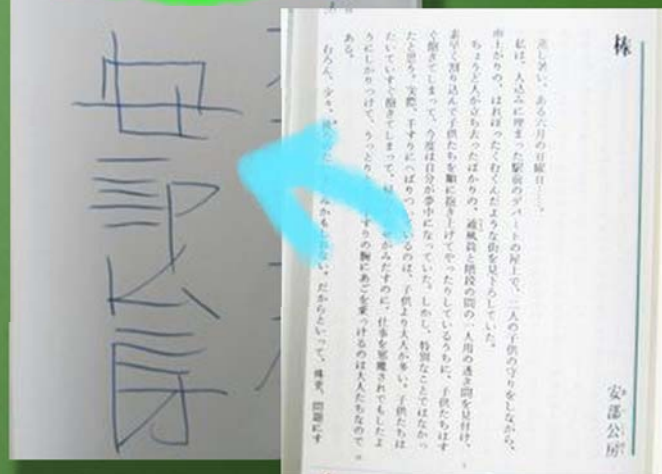 棒
安部公房
蒸し暑い、ある六月の日曜日……。
私は、人込みに埋まった駅前のデパートの屋上で、二人の子供の守りをしながら、
雨上がりの、はれぼったくむくんだような街を見下ろしていた。
ちょうど人が立ち去ったばかりの、通風筒と階段の間の一人用の透き間を見付け、
素早く割り込んで子供たちを順に抱き上げてやったりしているうちに、子供たちはす
ぐ飽きてしまって、今度は自分が夢中になっていた。しかし、特別なことではなかっ
たと思う。実際、手すりにへばりついているのは、子供より大人が多い。子供たちは
たいていすぐ飽きてしまって、がみだすのに、仕事を邪魔されでもしたよ
うにしかりつけて、うっとりすりの腕にあごを乗っけるのは大人たちなので
ある。
むろん、少々、みかもしれない。だからといって、殊更、問題にす
安部公房